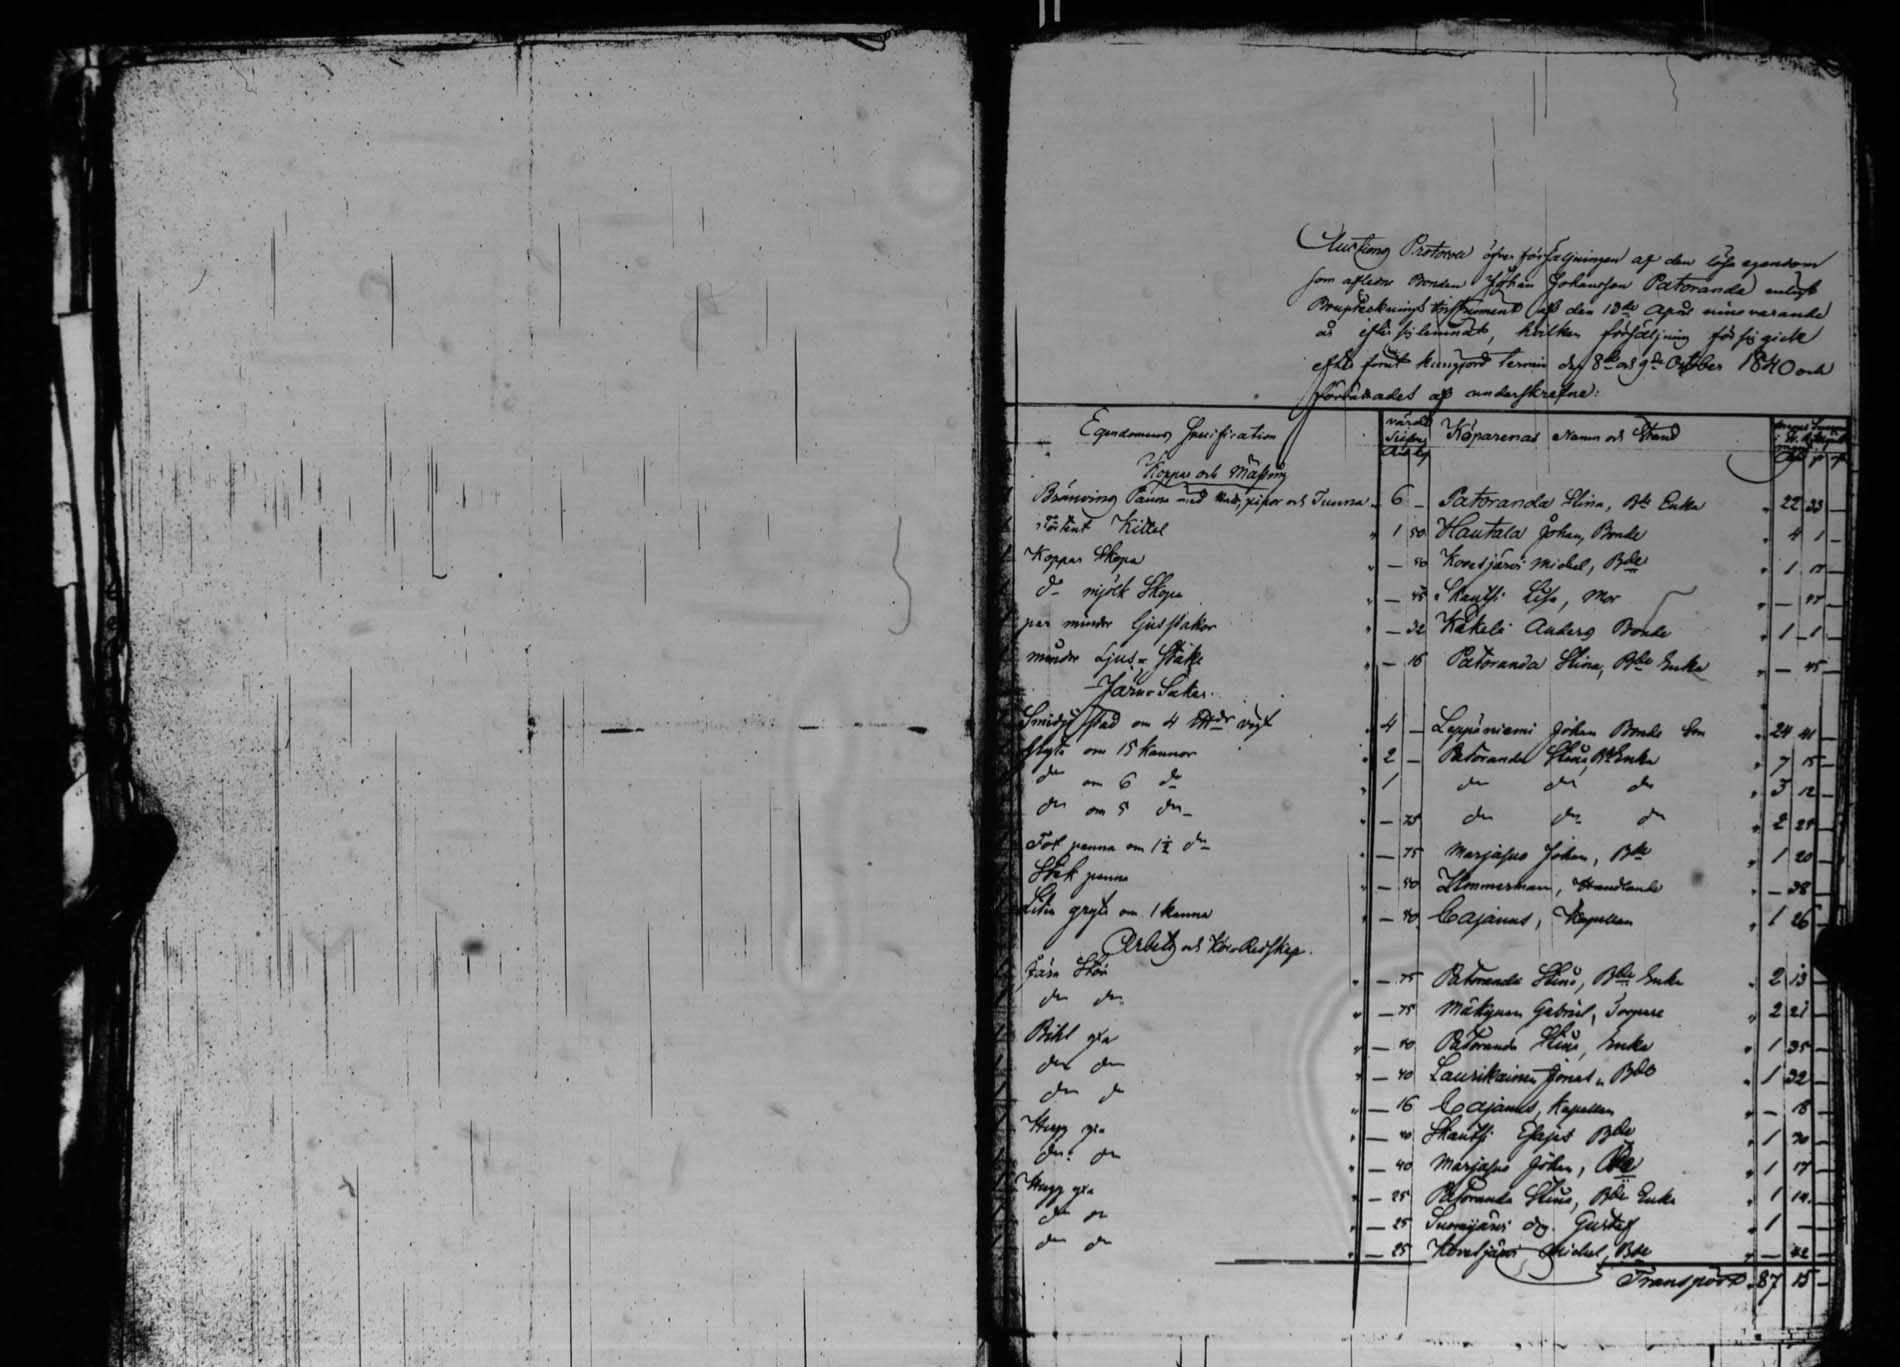 Auctions Protocoll öfver försäljningen af den lösa egendom
som aflidne Bonden Johan Johansson Patoranda enligt
Bouptecknings Instrument af den 13de April innevarande
år efter sig lemnat, hvilken försäljning för sig gick
efter förut kungjord termin den 8de och 9de October 1840 och
förrättades af underskrefne:
Egendomens Specification värde Köparenas Namn och Stånd
Koppar och Mässing
Bränvins Panna med hatt, pipor och Tunna 6 – Patoranda Stina, Bde Enka 22 33 –
Förtent Kittel 1 50 Hautala Johan, Bonde 4 1 –
1 Koppar Skopa – 50 Kovesjärvi Michel, Bde 1
1 do mjölk Skopa – Skantsi Lisa, Mor –
1 par mindre Ljusstakar – 32 Käkelä Anders Bonde 1 1 –
mindre Ljus Stake – 16 Patoranda Stina, Bde Enka – 45 –
Järn Saker
Smides städ om 4 vigt 4 – Leppäniemi Johan Bonde Son 24 41 –
Gryta om 15 kannor 2 – Patoranda Stina Bde Enka 7 15 –
do om 6 do 1 do do do 3 12 –
do om 5 do – 75 do do do 2 25 –
Fot panna om 1½ do – 75 Marjapuo Johan, Bde 1 20 –
Stek panna – 50 Zimmerman, Handlande – 38 –
Liten gryta om 1 kanna – 40 Cajanus, Kapellan 1 26 –
Arbets och Kör-Redskap.
Järn Stör – 75 Patoranda Stina, Bde Enka 2 13 –
1 do do – 75 Mäkynen Gabriel, Torpare 2 21 –
1 Bihl yxa – 40 Patoranda Stina, Enka 1 35 –
1 do do – 40 Laurikainen Jonas, Bde 1 32 –
1 do do – 16 Cajanus, Kapellan – 18 –
1 Hugg yxa – 40 Skantsi Esajas Bde 1 30 –
1 do do – 40 Marjapuo Johan, Bde 1 17 –
1 Hugg yxa – 25 Patoranda Stina, Bde Enka 1 14 –
1 do do – 25 Suomijärvi drg. Gustaf 1 – –
1 do do – 25 Kovesjärvi Michel, Bde – 42 –
Transport 87 15 –